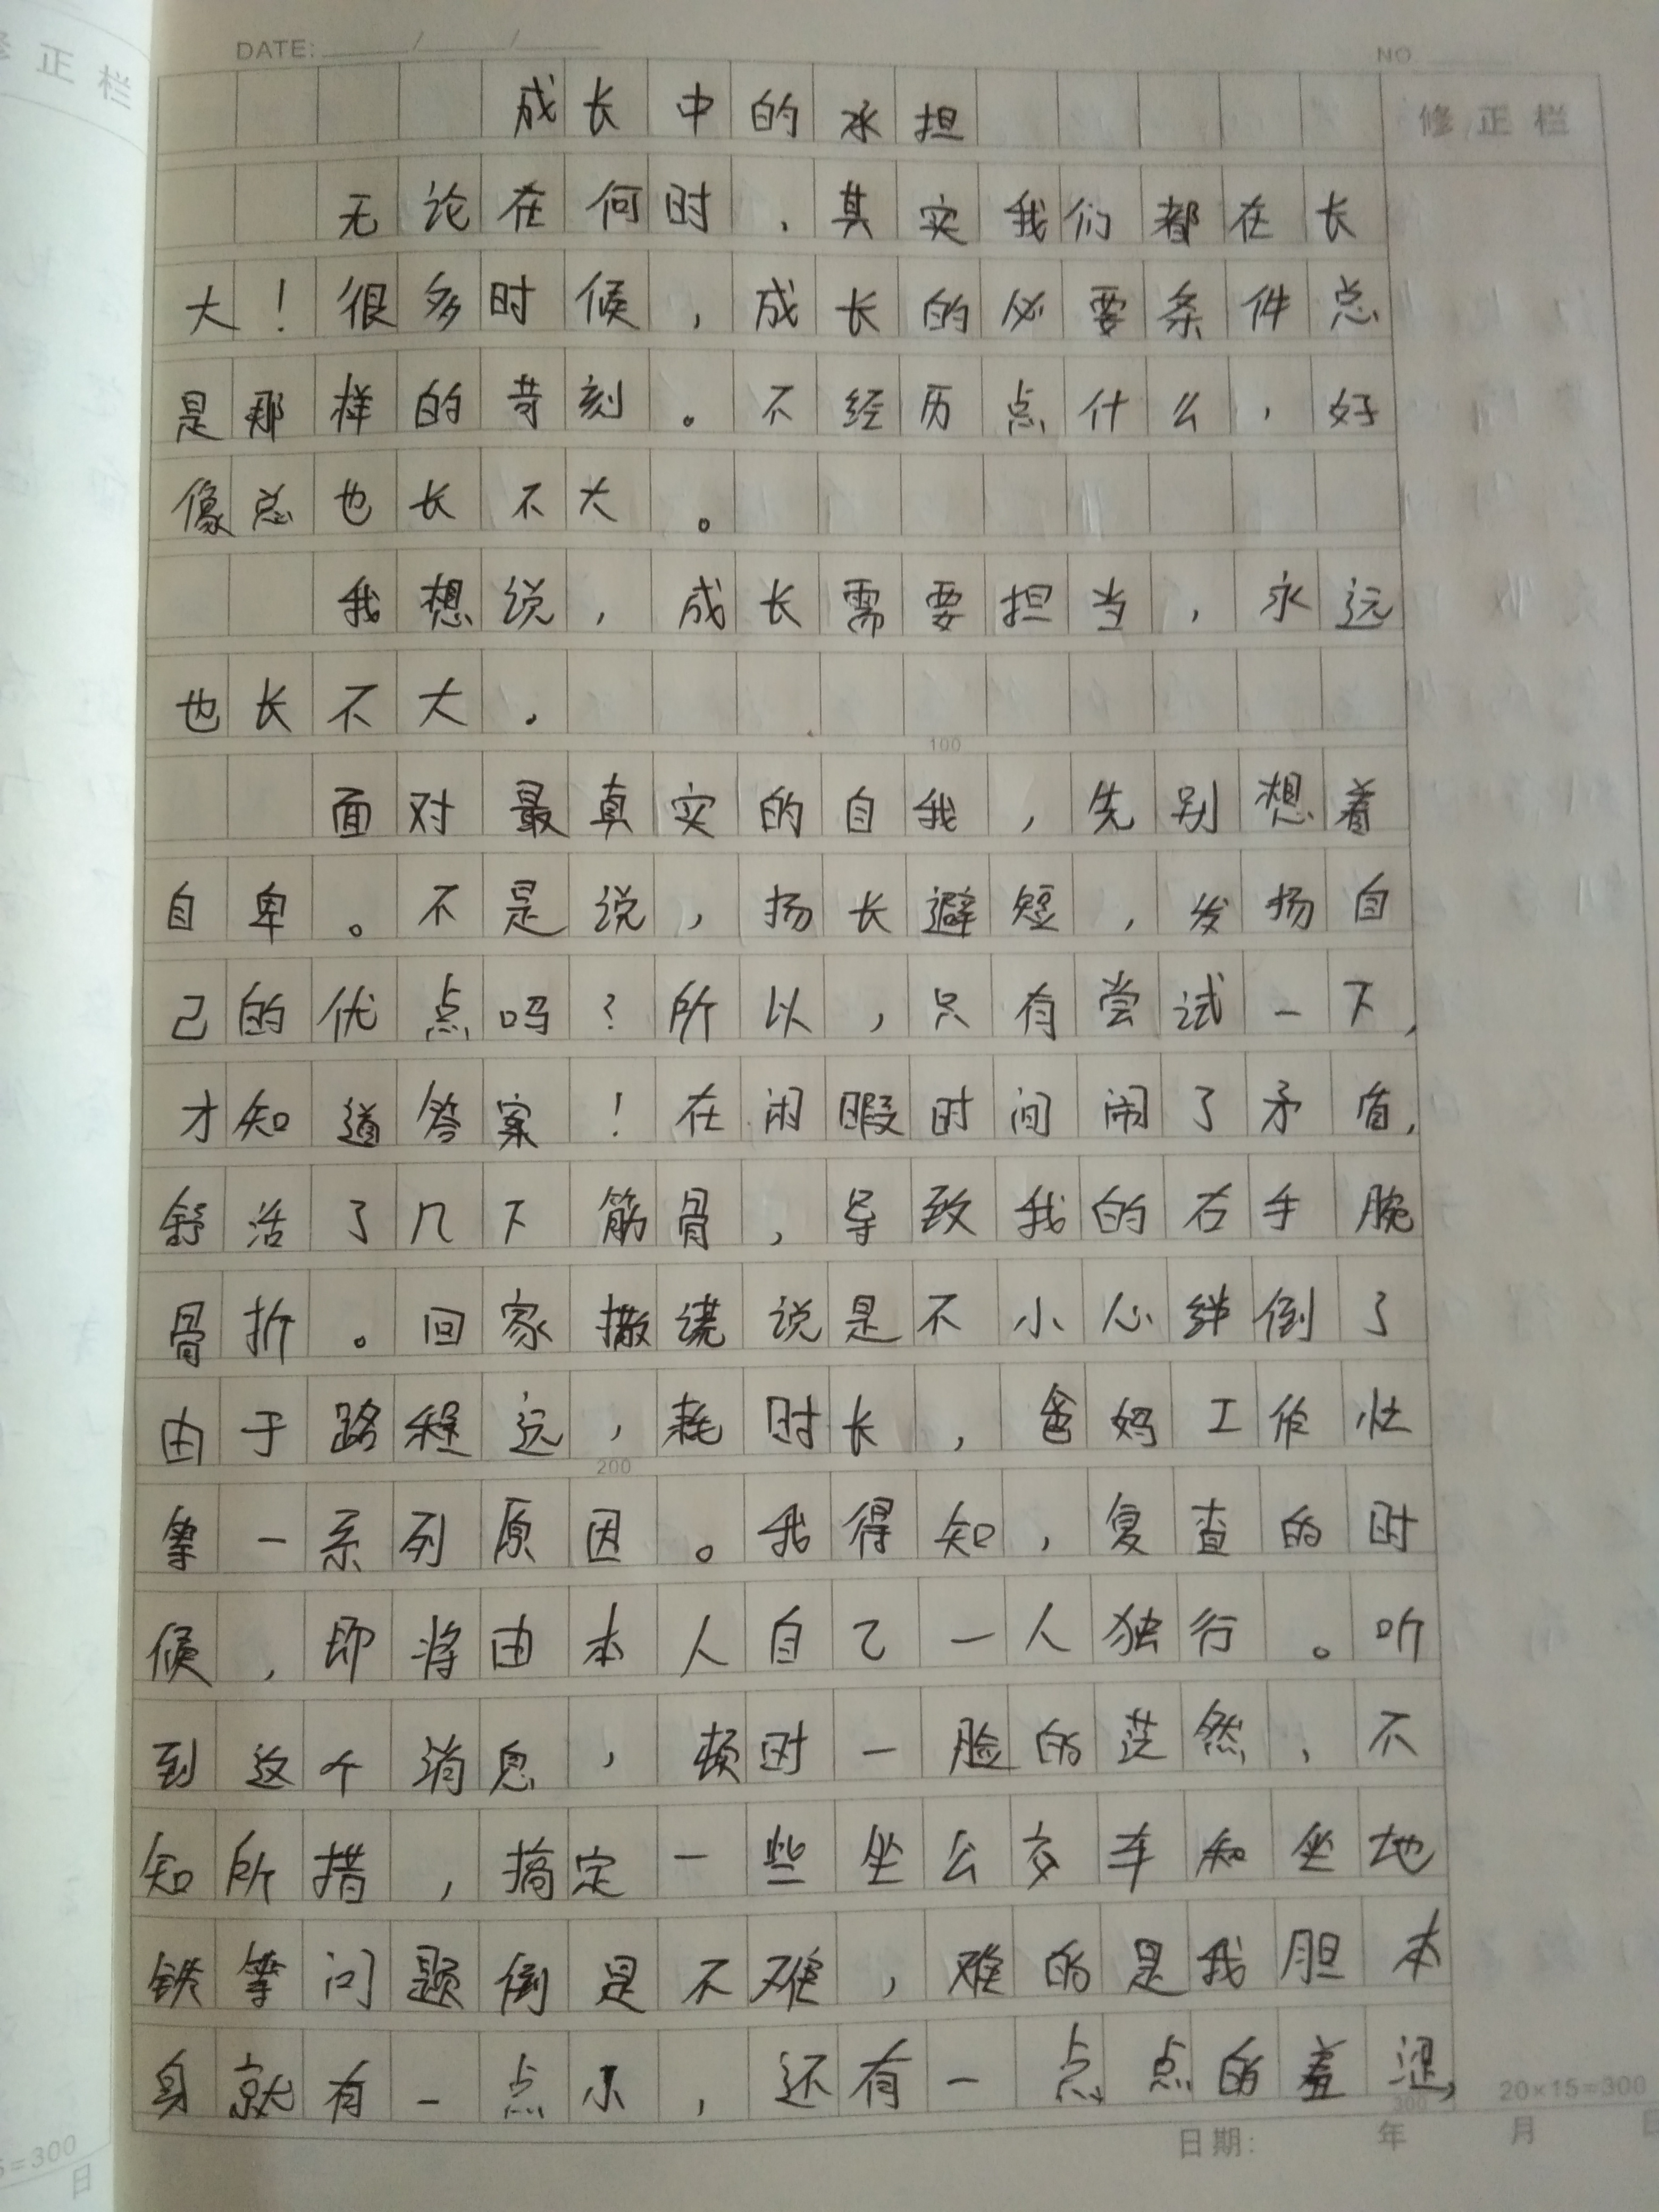 DATE: / /
NO
修正栏
修正栏
成长中的承担
无论在何时,其实我们都在长
大!很多时候,成长的必要条件总
是那样的苛刻。不经历点什么,好
像总也长不大。
我想说,成长需要担当,永远
也长不大.
100
面对最真实的自我,先别想着
自卑。不是说,扬长避短,发扬自
己的优点吗?所以,只有尝试一下,
才知道答案!在闲暇时间闹了矛盾,
舒活了几下筋骨,导致我的右手腕
骨折。回家撒谎说是不小心绊倒了
由于路程远,耗时长,爸妈工作忙
200
等一系列原因。我得知,复查的时
候,即将由本人自己一人独行。听
到这个消息,顿时一脸的茫然,不
知所措,搞定一些坐公交车和坐地
铁等问题倒是不难,难的是我胆本
身就有一点小,还有一点点的羞涩,
300
20×15=300
日期: 年 月 日
5=300
日